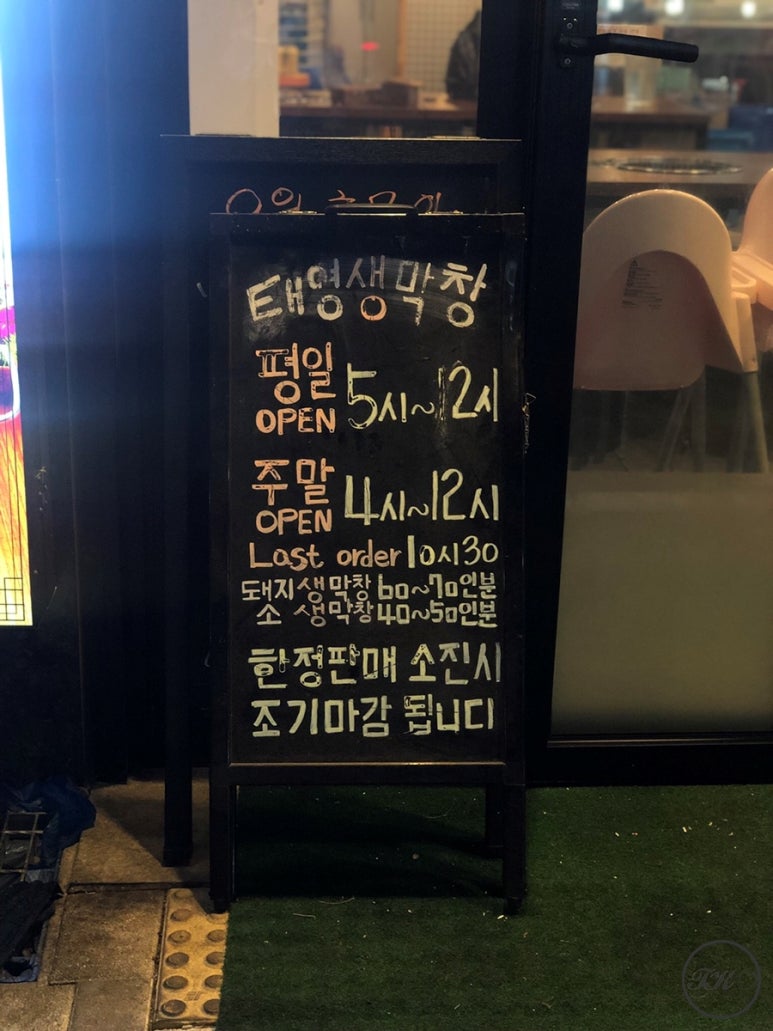 태영생막창
평일 OPEN 5시~12시
주말 OPEN 4시~12시
Last order 10시30
돼지생막창 60~70인분
소 생막창 40~50인분
한정판매 소진시
조기마감 됩니다